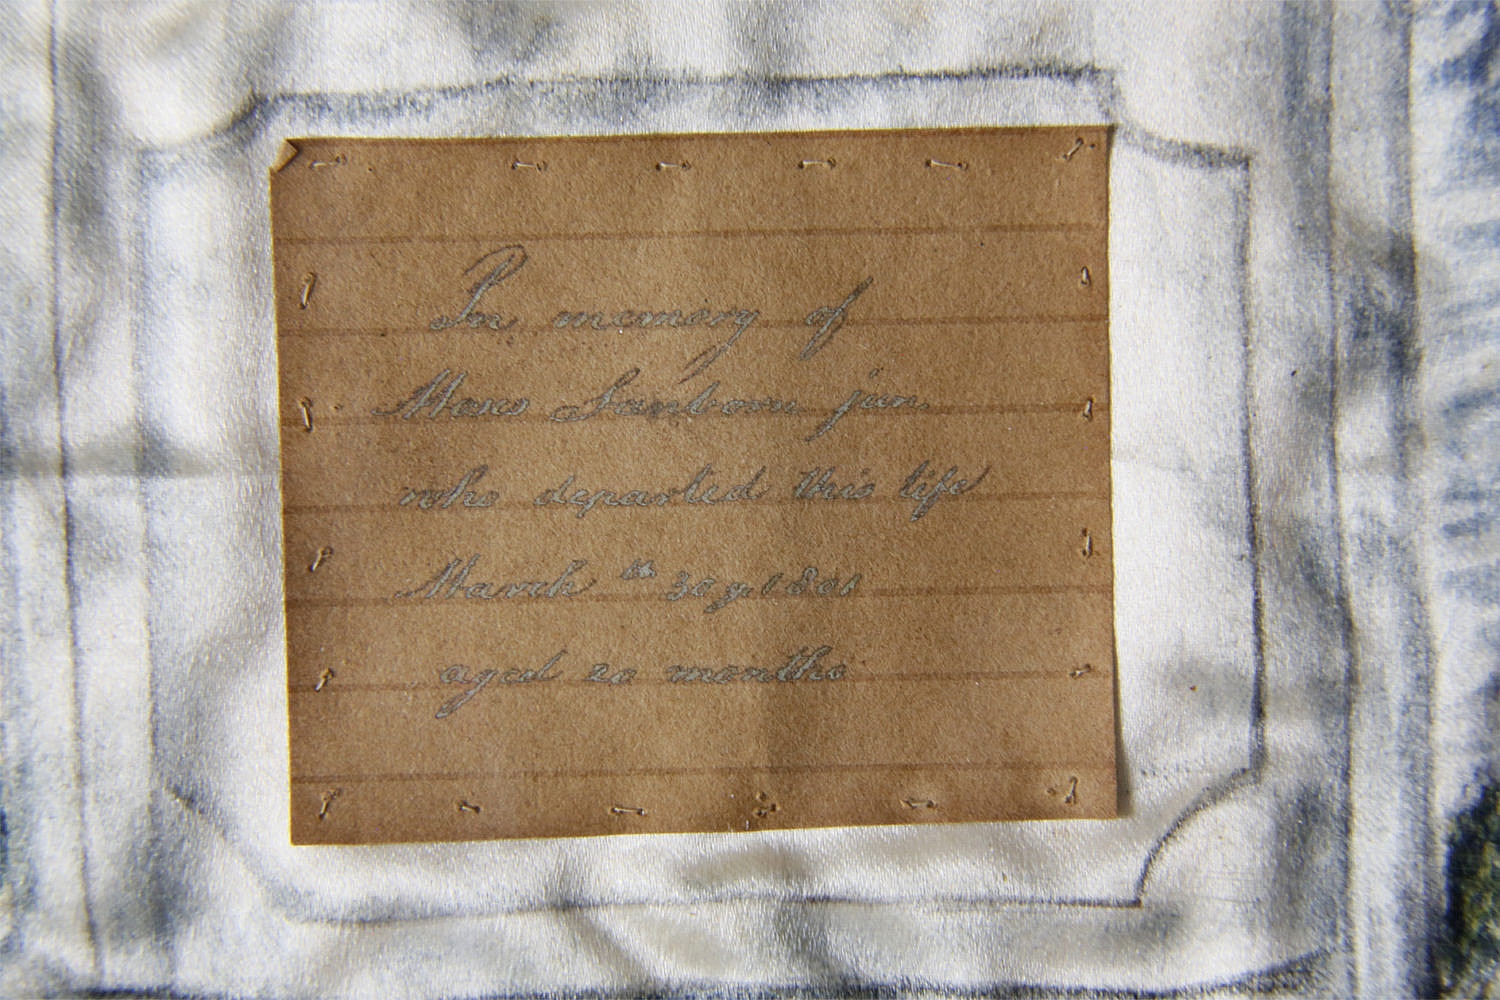 In memory of
Sanborn jun.
who departed this life
March th 30 1801
aged 20 months